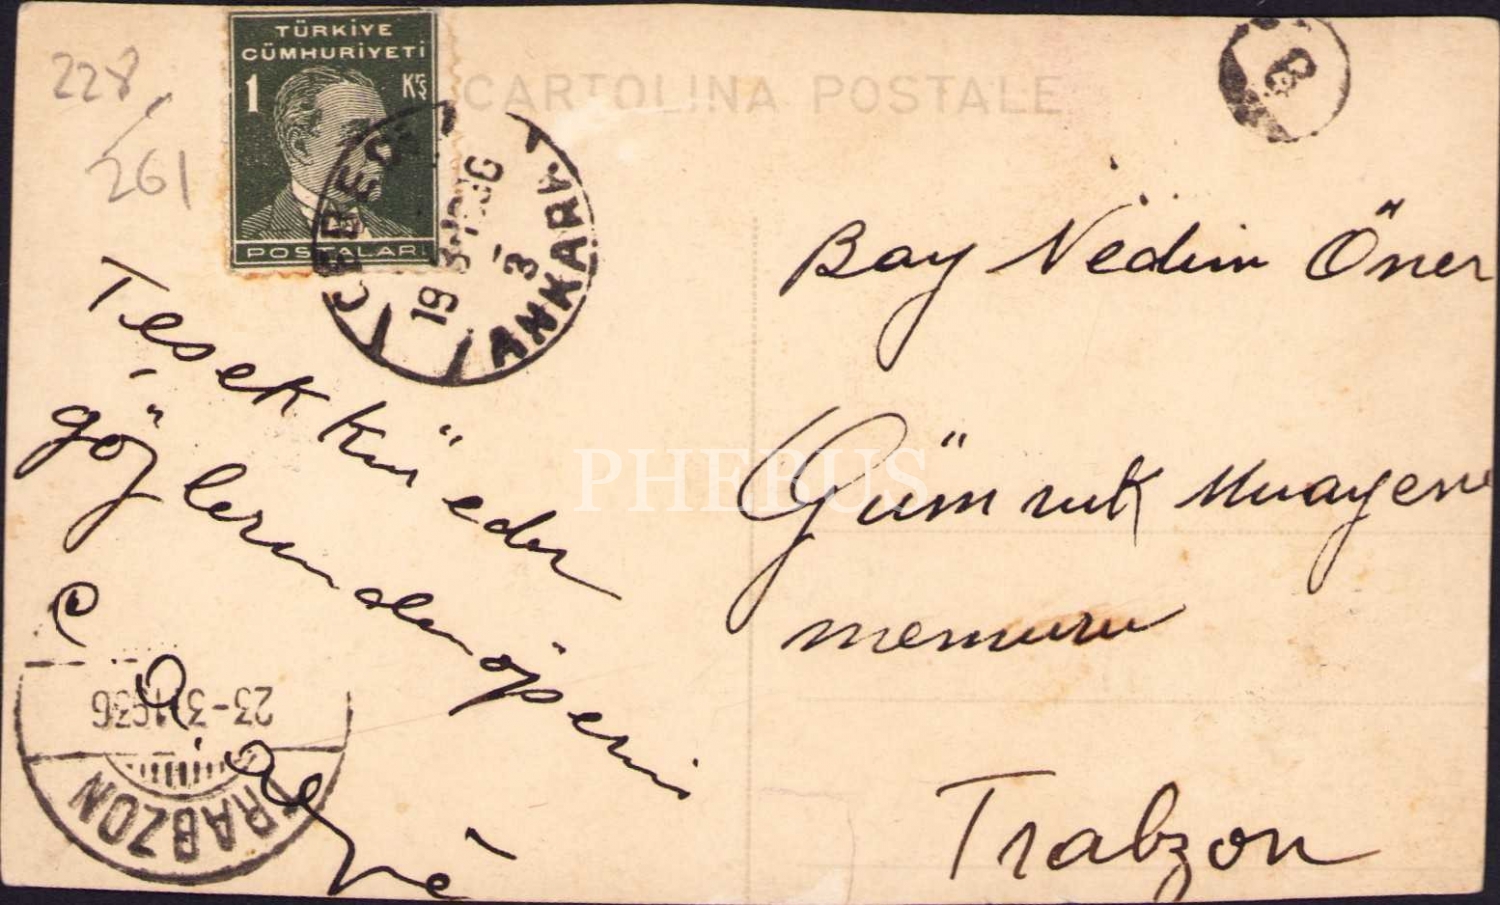 228
261
TÜRKİYE
CÜMHURİYETİ
1 Krş
POSTALARI
CARTOLINA POSTALE
CEBECİ
ANKARA
3
Teşekkür eder
gözlerinden öperim
Bay Nedim Öner
Gümrük Muayene
memuru
Trabzon
23-3-1936
TRABZON
PHEBUS